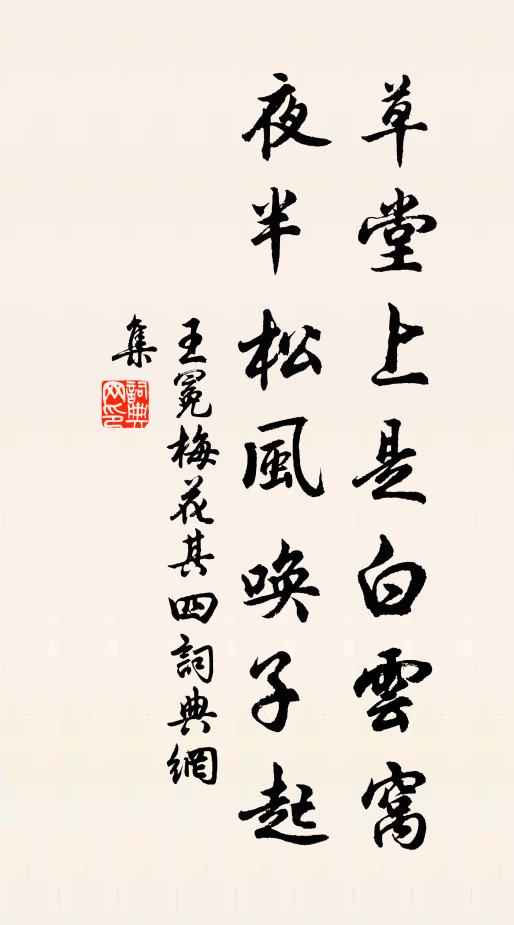 草堂上是白雲窩
夜半松風喚子起
王冕梅花其四詞典網
集
詞典
网印